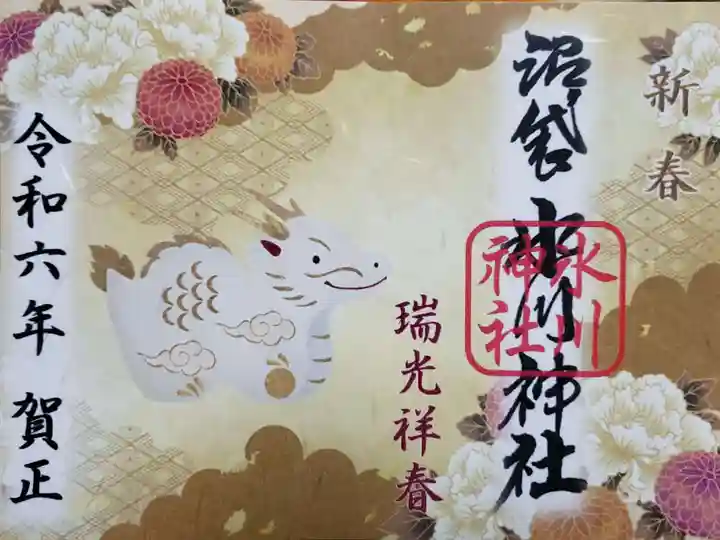 新春
沼袋氷川神社
氷川
神社
瑞光祥春
令和六年 賀正